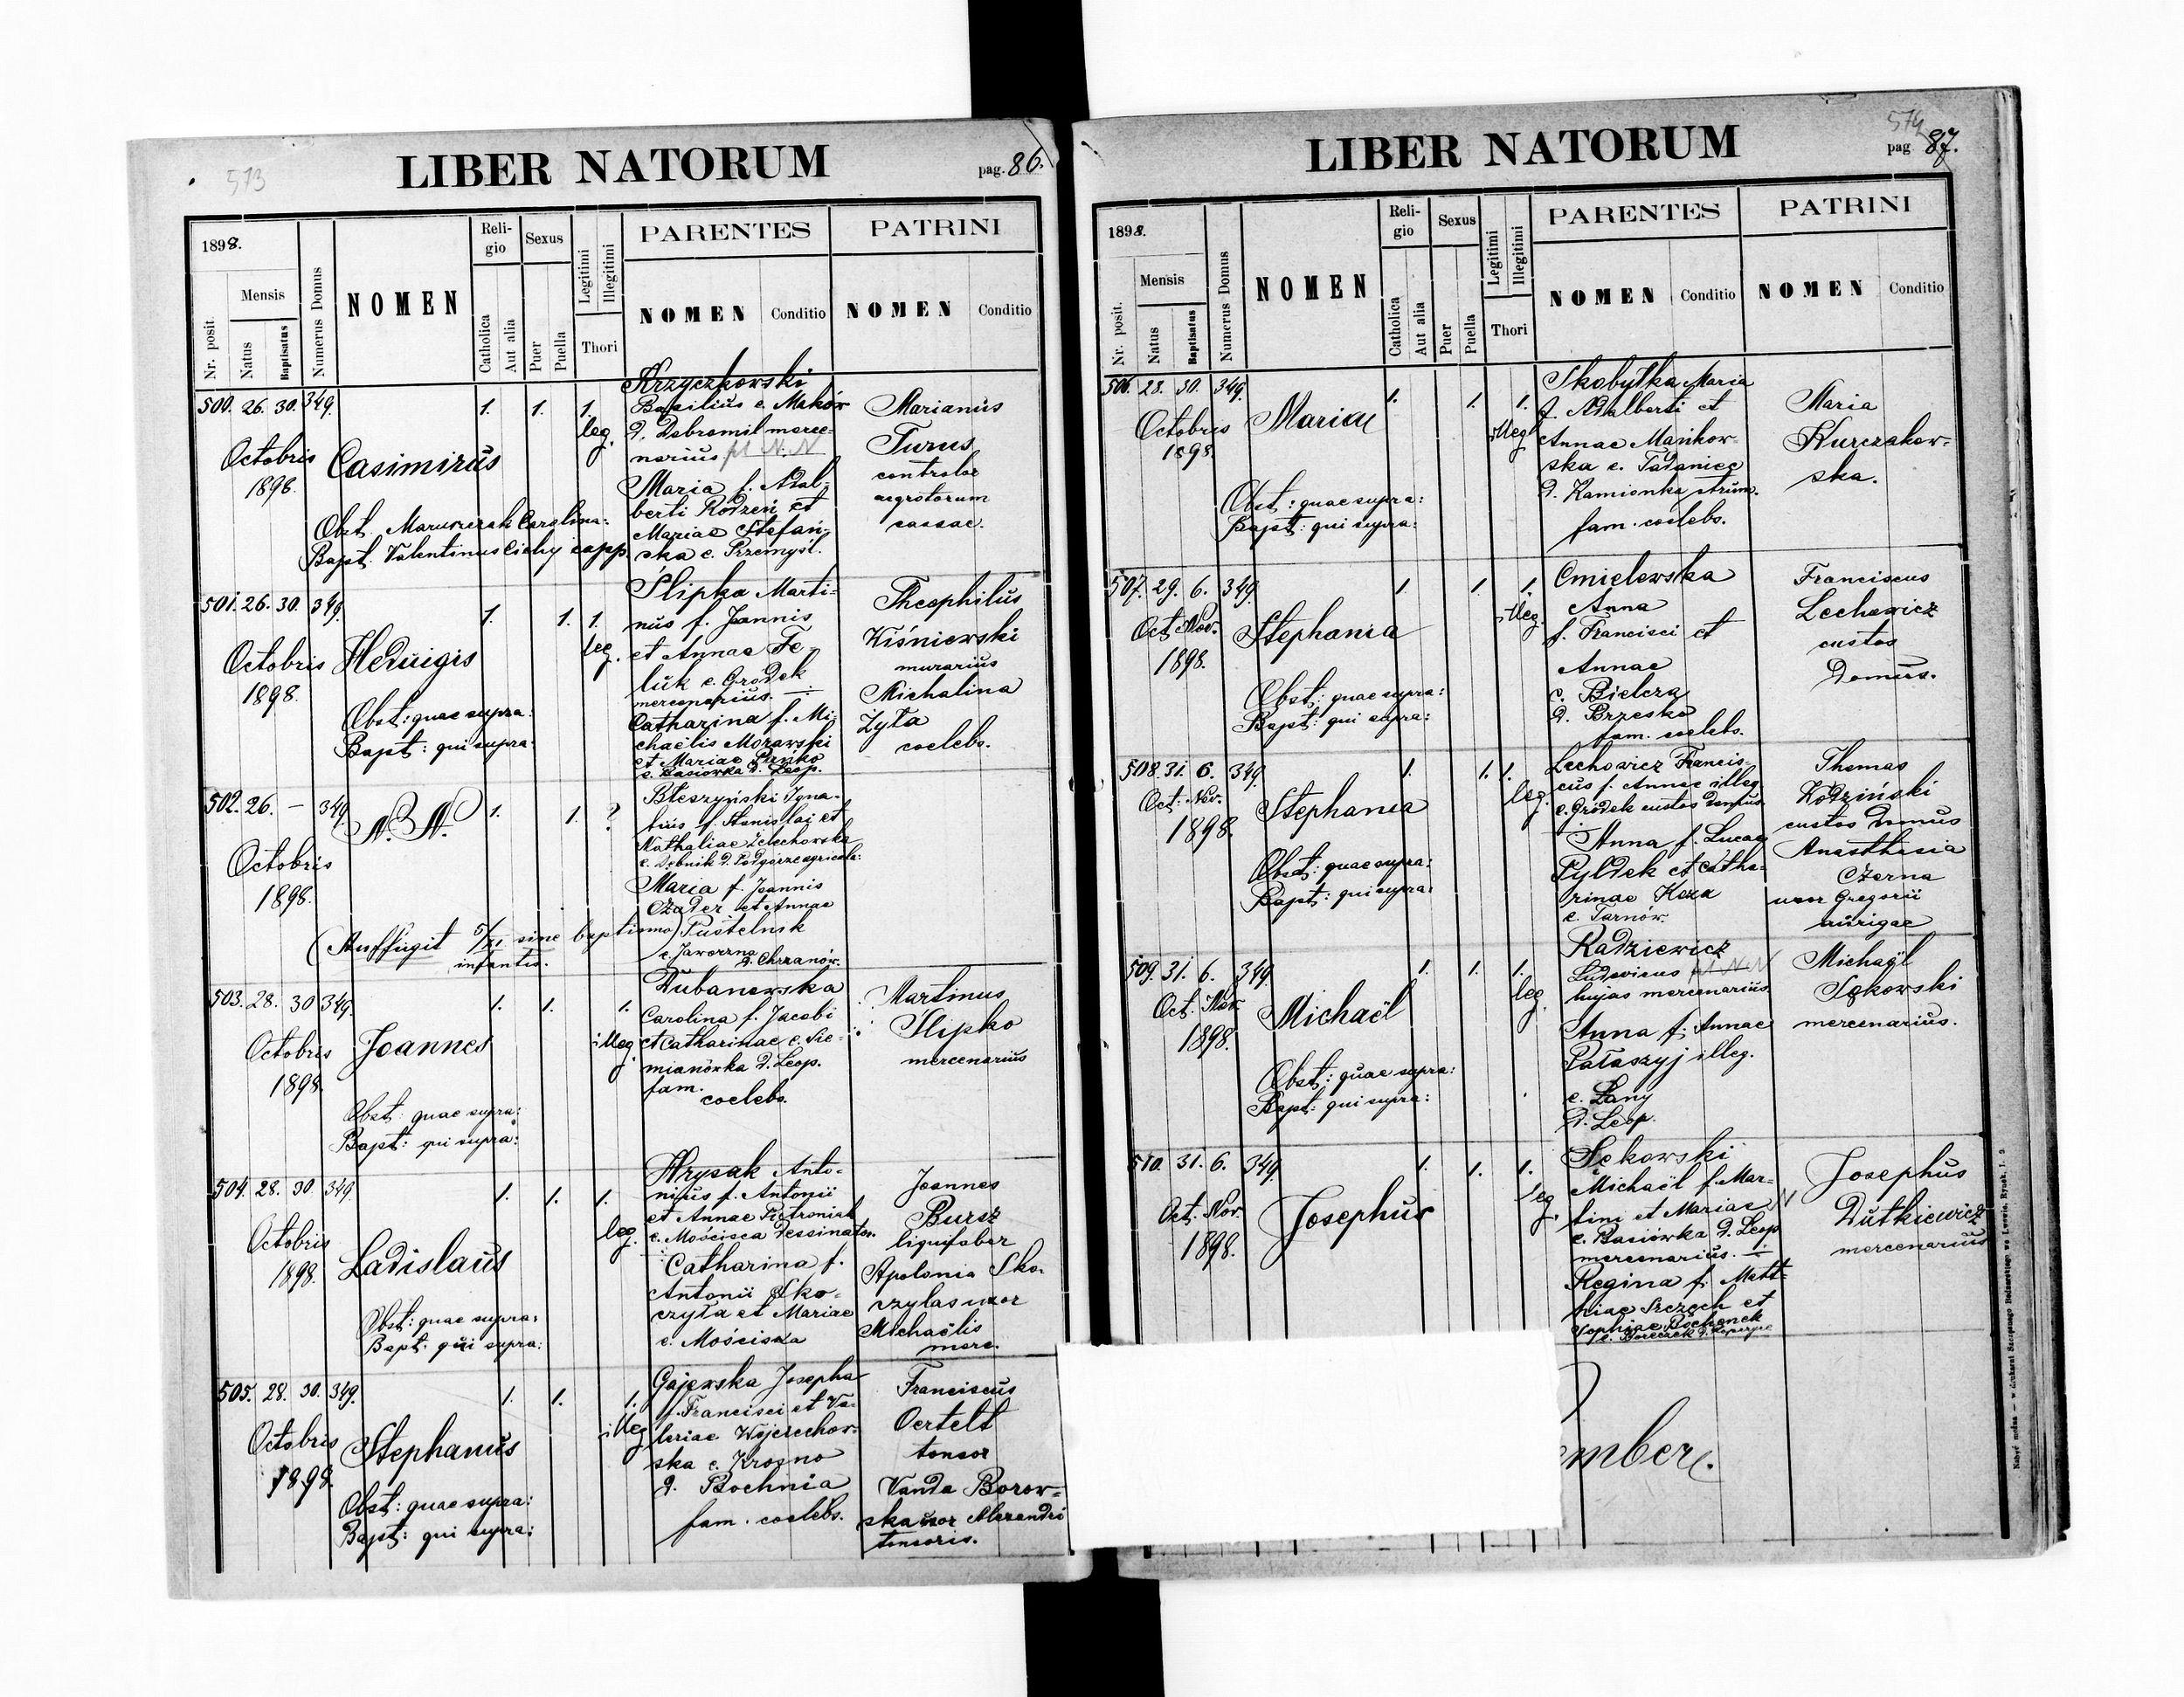 573
LIBER NATORUM
pag. 86.
1898.
Nr. posit.
Mensis
Natus
Baptisatus
Numerus Domus
NOMEN
Religio
Catholica
Aut alia
Sexus
Puer
Puella
Legitimi
Illegitimi
Thori
PARENTES
NOMEN
Conditio
PATRINI
NOMEN
Conditio
500. 26. 30. 349.
Octobris
1898.
Casimirus
1. 1. 1.
leg.
Obst. Carolina:
Bapt. Valentinus Cichy capp.
Krzyczkowski
Basilius e. Maków
d. Dobromil merce-
narius N. N
Maria f. Adal-
berti Rodzeń et
Mariae Stefań-
ska e. Przemyśl.
Marianus
Turus
controlor
aegrotorum
cassae.
501. 26. 30. 349.
Octobris
1898.
Heduigis
1. 1. 1.
leg.
Obst: quae supra:
Bapt: qui supra:
Ślipka Marti-
nus f. Joannis
et Annae Fe-
luk e. Grodek
mercenarius. ÷
Catharina f. Mi-
chaëlis Morawski
et Mariae
e. Basiowka d. Leop.
Theophilus
Wiśniewski
murarius
Michalina
Żyta
coelebs.
502. 26. — 349.
Octobris
1898.
N. N.
1. 1. ?
(Auffugit 5/XI sine baptismo)
infantis.
Błeszyński Igna-
tius f. Stanislai et
Nathaliae Żelechowska
e. Dębnik d. Podgórze agricola:
Maria f. Joannis
Czader et Annae
Pustelnik
e. Jaworzna d. Chrzanów.
503. 28. 30 349.
Octobris
1898.
Joannes
1. 1. 1.
illeg.
Obst: quae supra:
Bapt: qui supra:
Dubanowska
Carolina f. Jacobi
et Catharinae e. Sie-
mianówka d. Leop.
fam.
coelebs.
Martinus
Slipko
mercenarius
504. 28. 30. 349.
Octobris
1898.
Ladislaus
1. 1. 1.
leg.
Obst: quae supra:
Bapt: qui supra:
Hrysak Anto-
nius f. Antonii
et Annae Pietroniak
e. Mościsca dessinator.
Catharina f.
Antonii Sko-
czyła et Mariae
e. Mościska
Joannes
Bursz
liquifaber
Apolonia Sko-
czylas uxor
Michaëlis
merc.
505. 28. 30. 349.
Octobris
1898.
Stephanus
1. 1. 1.
illeg
Obst: quae supra:
Bapt: qui supra:
Gajewska Josepha
f. Francisci et Va-
leriae Wojciechow-
ska e. Krosno
d. Bochnia
fam. coelebs.
Franciscus
Oertelt
tonsor
Vanda Borow-
ska uxor Alexandri
tonsoris.
574
LIBER NATORUM
pag 87.
1898.
Nr. posit.
Mensis
Natus
Baptisatus
Numerus Domus
NOMEN
Religio
Catholica
Aut alia
Sexus
Puer
Puella
Legitimi
Illegitimi
Thori
PARENTES
NOMEN
Conditio
PATRINI
NOMEN
Conditio
506. 28. 30. 349.
Octobris
1898.
Maria
1. 1. 1.
illeg
Obst: quae supra:
Bapt: qui supra:
Skobyłka Maria
f. Adalberti et
Annae Mańkow-
ska e. Tadaniec
d. Kamionka strum.
fam. coelebs.
Maria
Kurczakow-
ska.
507. 29. 6. 349.
Oct. Nov.
1898.
Stephania
1. 1. 1.
illeg.
Obst: quae supra:
Bapt: qui supra:
Cmielewska
Anna
f. Francisci et
Annae
e. Bielcza
d. Brzesko
fam. coelebs.
Franciscus
Lechowicz
custos
Domus.
508. 31. 6. 349.
Oct. Nov.
1898.
Stephania
1. 1. 1.
leg.
Obst: quae supra:
Bapt: qui supra:
Lechowicz Francis-
cus f. Annae illeg
e. Gródek custos domus.
Anna f. Lucae
Pyldek et Catha-
rinae Koza
e. Tarnów.
Thomas
Kodziński
custos Domus
Anasthasia
Czerna
uxor Gregorii
aurigae
509. 31. 6. 349.
Oct. Nov.
1898.
Michaël
1. 1. 1.
leg.
Obst: quae supra:
Bapt: qui supra:
Radziewicz
Ludovicus N. N
hujas mercenarius.
Anna f. Annae
Pałaszyj illeg.
e. Łany
d. Leop.
Michaël
Sękowski
mercenarius.
510. 31. 6. 349.
Oct. Nov.
1898.
Josephus
1. 1. 1.
leg.
Sękowski
Michaël f. Mar-
tini et Mariae
e. Basiówka d. Leop
mercenarius. ÷
Regina f. Matt-
hiae Szczech et
Sophiae Bochenek
Josephus
Dutkiewicz
mercenarius
ember.